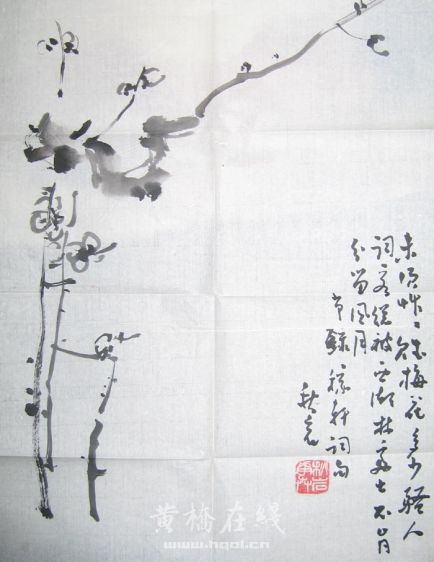 未须草々赋梅花多少骚人
词客总被西湖林处士不肯
分留风月
节録稼轩词句
黄橋在线
www.hqol.cn